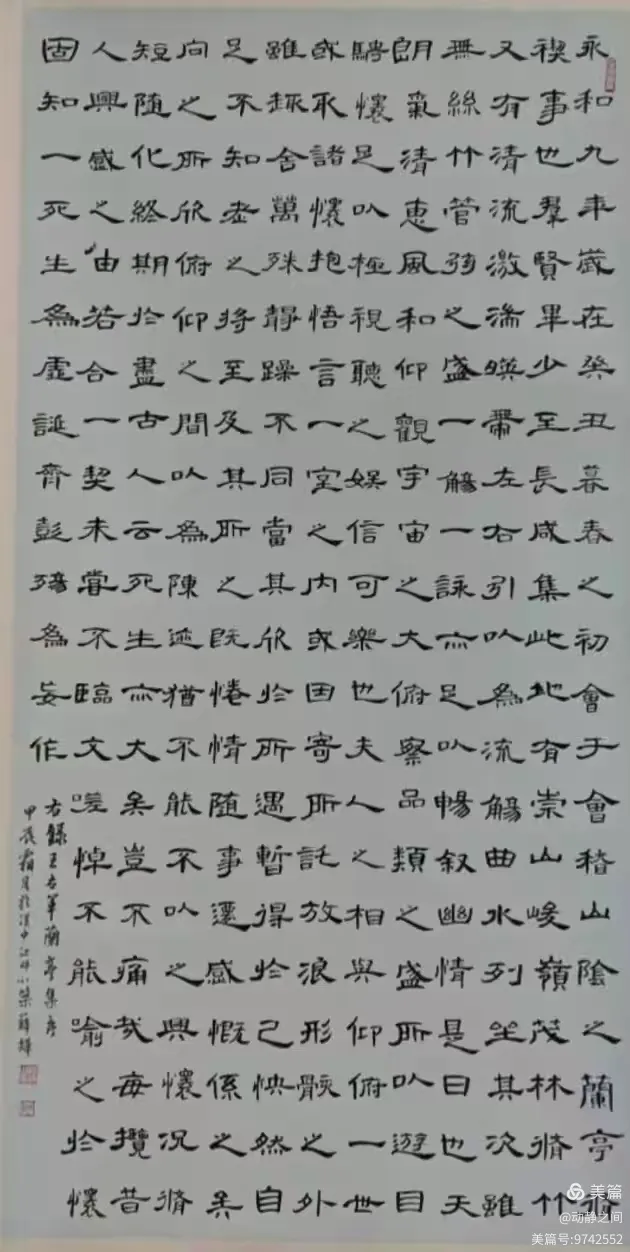 永和九年歲在癸丑暮春之初會于會稽山陰之蘭亭脩
禊事也羣賢畢少至長咸集此地有崇山峻嶺茂林脩竹
又有清流激湍暎帶左右引以為流觴曲水列坐其次雖
無絲竹管弦之盛一觴一詠亦足以暢叙幽情是日也天
朗氣清惠風和仰觀宇宙之大俯察品類之盛所以遊目
騁懷足以極視聽之娛信可樂也夫人之相與仰俯一世
或取諸懷抱悟言一室之内或因寄所託放浪形骸之外
雖趣舍萬殊静躁不同當其欣於所遇暫得於己怏然自
足不知老之將至及其所之既惓情随事遷感慨係之矣
向之所欣俯仰之間以為陳迹猶不能不以之興懷况脩
短随化終期於盡古人云死生亦大矣豈不痛哉每攬昔
人興感之由若合一契未嘗不臨文嗟悼不能喻之於懷
固知一死生為虛誕齊彭殤為妄作
右錄王右軍蘭亭集序
甲辰霜月於漢中江畔小築薛輝
美篇
@动静之间
美篇号:9742552